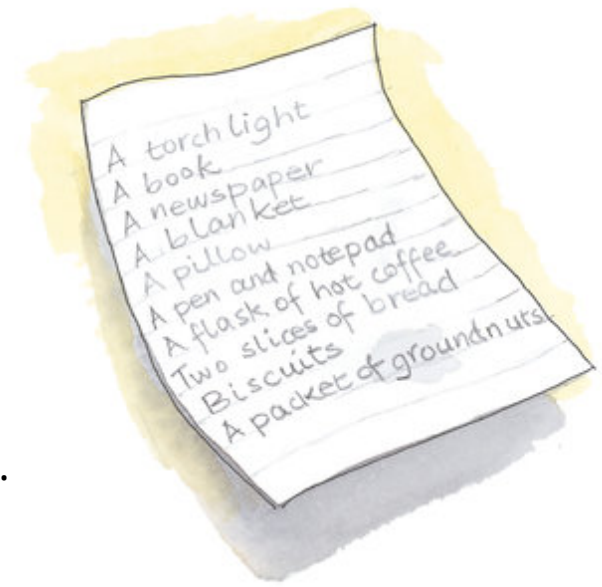 A torch light
A book
A newspaper
A blanket
A pillow
A pen and notepad
A flask of hot coffee
Two slices of bread
Biscuits
A packet of groundnuts